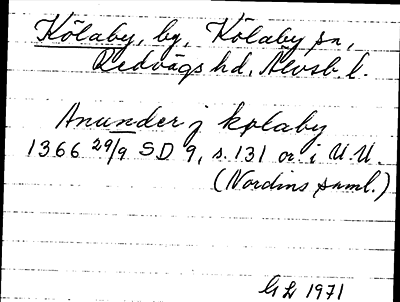 Kölaby, by, Kölaby sn,
Redvägs hd, Älvsb. l.
Anunder j kølaby
1366 29/9 SD 9, s. 131 or. i U.U.
(Nordins saml.)
GL 1971